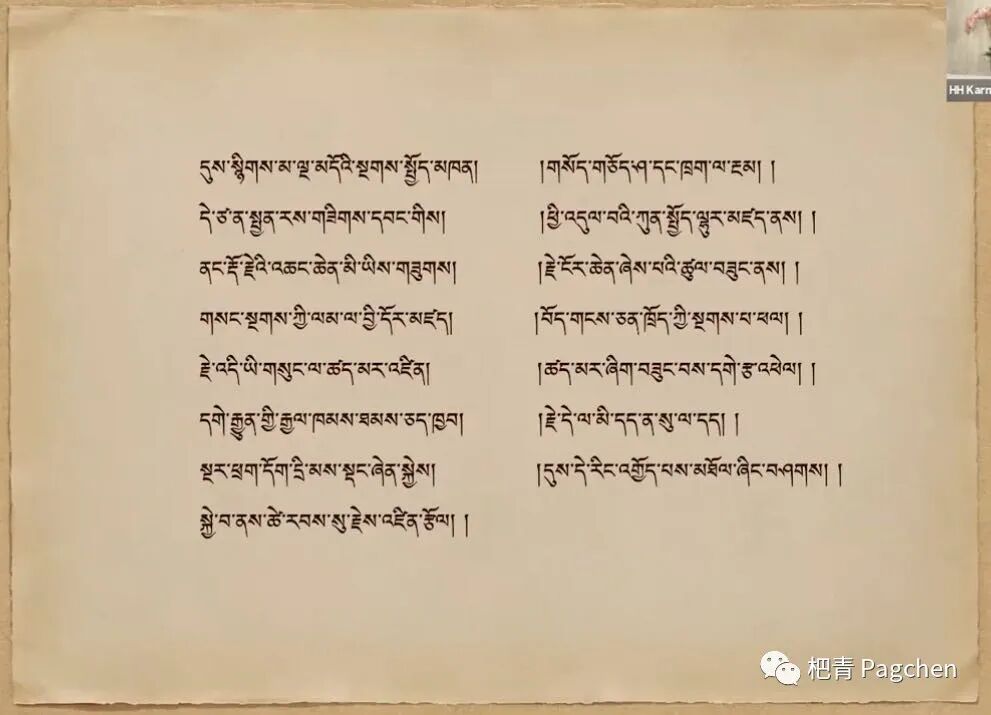 HH Karn
དུས་སྙིགས་མ་ལྔ་མདོའི་སྔགས་སྤྱོད་མཁན། །གསོད་གཅོད་ཤ་དང་ཁྲག་ལ་རྔམ། །
དེ་ཙ་ན་སྤྱན་རས་གཟིགས་དབང་གིས། །ཕྱི་འདུལ་བའི་ཀུན་སྤྱོད་ལྷུར་མཛད་ནས། །
ནང་རྡོ་རྗེའི་འཆང་ཆེན་མི་ཡིས་གཟུགས། །རྗེ་ངོར་ཆེན་ཞེས་པའི་ཚུལ་བཟུང་ནས། །
གསང་སྔགས་ཀྱི་ལམ་ལ་བྱི་དོར་མཛད། །བོད་གངས་ཅན་ཁྲོད་ཀྱི་སྔགས་པ་ཕལ། །
རྗེ་འདི་ཡི་གསུང་ལ་ཚད་མར་འཛིན། །ཚད་མར་ཞིག་བཟུང་བས་དགེ་རྩ་འཕེལ། །
དགེ་རྒྱུན་གྱི་རྒྱལ་ཁམས་ཐམས་ཅད་ཁྱབ། །རྗེ་དེ་ལ་མི་དད་ན་སུ་ལ་དད། །
སྔར་ཕྲག་དོག་དྲི་མས་སྡང་ཞེན་སྐྱེས། །དུས་དེ་རིང་འགྱོད་པས་མཐོལ་ཞིང་བཤགས། །
སྐྱེ་བ་ནས་ཚེ་རབས་སུ་རྗེས་འཛིན་རྩོལ། །
杷青 Pagchen